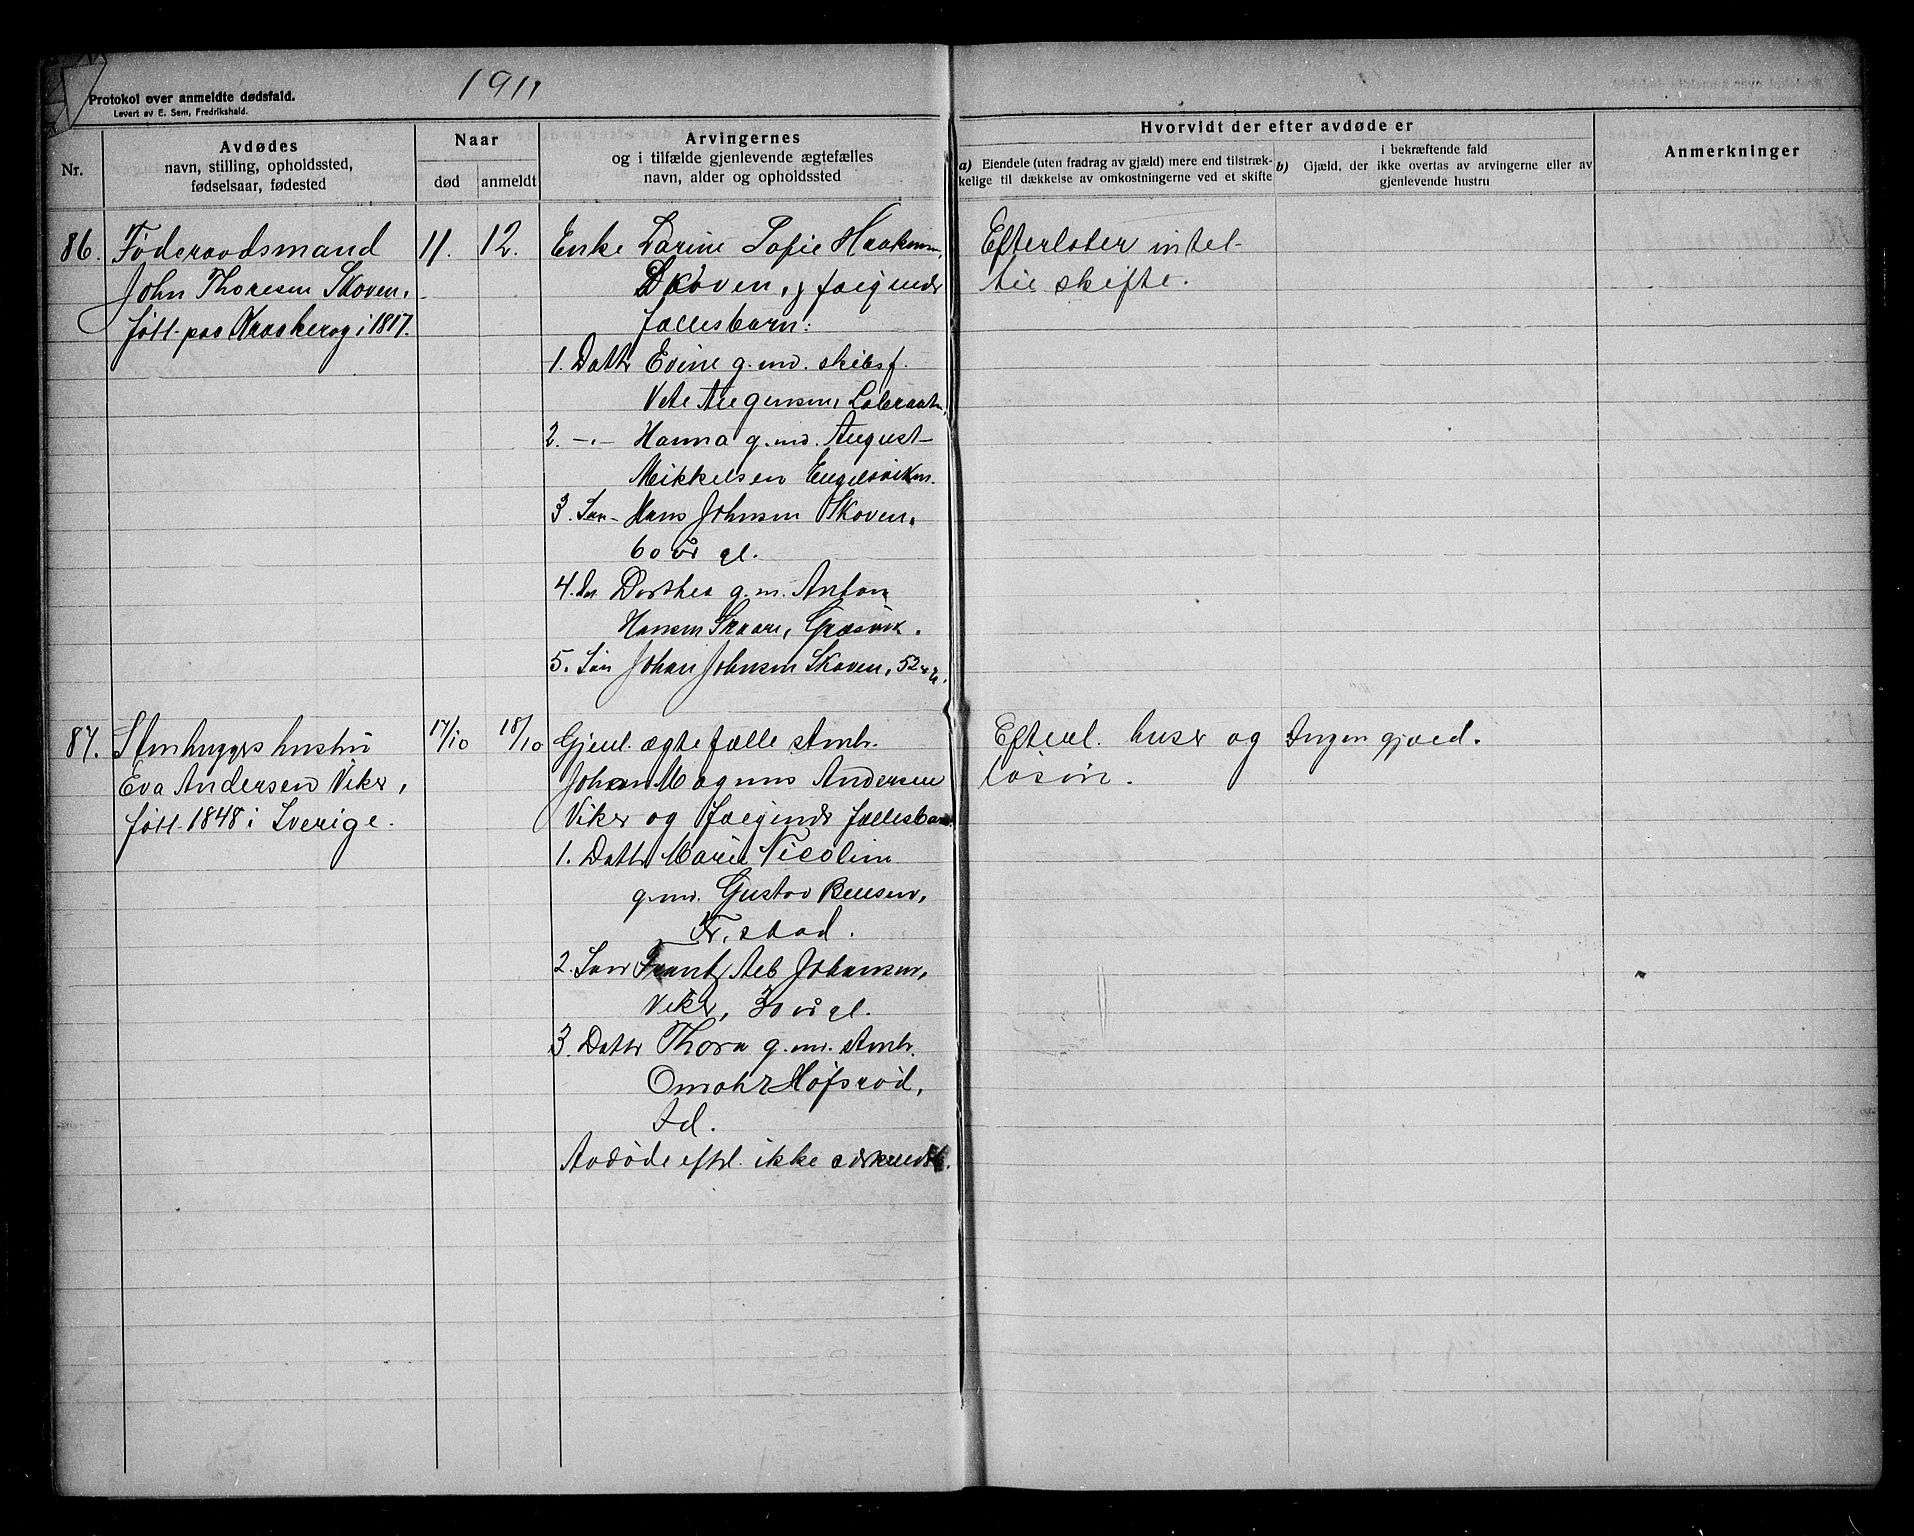 1911
Protokol over anmeldte dødsfald.
Levert av E. Sem, Fredrikshald.
Nr.
Avdødes
navn, stilling, opholdssted,
fødselsaar, fødested
Naar
død
anmeldt
Arvingernes
og i tilfælde gjenlevende ægtefælles
navn, alder og opholdssted
Hvorvidt der efter avdøde er
a) Eiendele (uten fradrag av gjæld) mere end tilstræk-
kelige til dækkelse av omkostningerne ved et skifte
i bekræftende fald
b) Gjæld, der ikke overtas av arvingerne eller av
gjenlevende hustru
Anmerkninger
86. Föderaadsmand
John Thoresen Skoven,
født paa Kraakerøy i 1817.
11. 12.
Enke Larine Sofie
Skoven, følgende
fællesbarn:
1. Datter Evine g. m. skibsf.
2. -"- Hanna g. m. August
Mikkelsen Engelsviken.
3. Søn Hans Johnsen Skoven,
60 år gl.
4. Dorthea g. m. Anton
Hansen Skaare, Græsvik.
5. Søn Johan Johnsen Skoven, 52
Efterlater intet
til skifte.
87. Stenhuggers hustru
Eva Andersen Viker,
født 1848 i Sverige.
17/10 18/10
Gjenl. ægtefælle stenh.
Johan Magnus Andersen
Viker og følgende fællesbarn
1. Datter Marie Nicoline
g. m. Gustav
Fr.stad.
2. Søn Frantz Johansen,
Viker, 30 år gl.
3. Datter Thora g. m. stenh.
Hofsrød,
Id.
Avdøde efterl. ikke særkuldsb.
Efterl. huser og
løsøre.
Ingen gjæld.